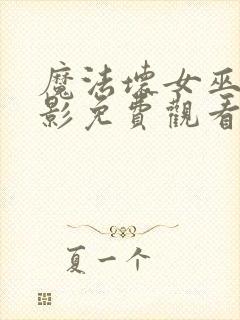 魔法壞女巫
影免費觀看
夏一个